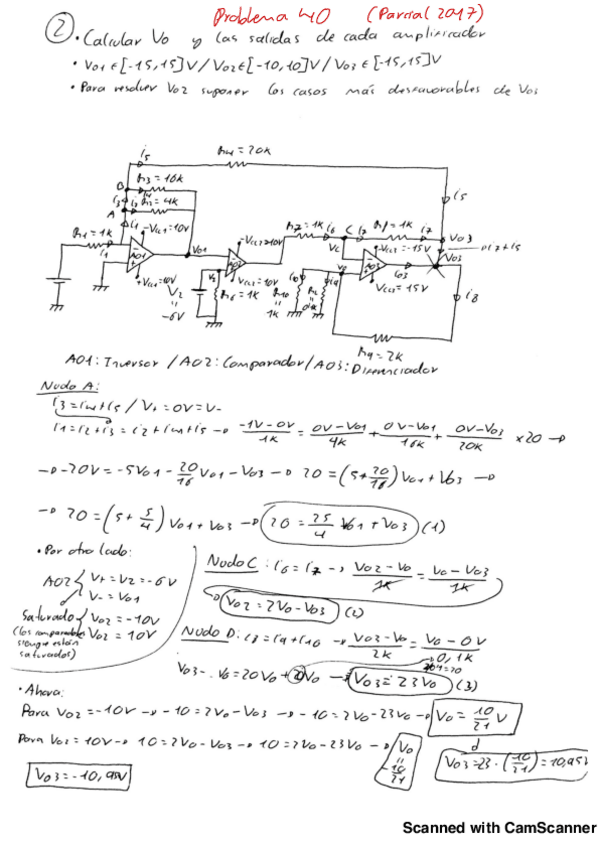 Problema 40 (Parcial 2017)
② • Calcular Vo y las salidas de cada amplificador
• Vo1 ∈ [-15,15]V / Vo2 ∈ [-10,10]V / Vo3 ∈ [-15,15]V
• Para resolver Vo2 suponer los casos más desfavorables de Vo3
i5
= 20K
i5
B
R3 = 16K
= 4K
A
R1 = 1K
i1
AO1
-Vcc1=10V
+Vcc1=10V
Vo1
V2
=
-6V
-Vcc2=10V
AO2
+Vcc2=10V
R6=1K
R7=1K
i6
C
i7
= 1K
i7
Vo3
Vc
-Vcc3=-15V
AO3
Vcc3=15V
i03
i7+i5
Vo3
i8
R10
=
1K
R9=2K
AO1: Inversor / AO2: Comparador / AO3: Diferenciador
Nudo A:
i3 = i4+i5 / V+ = 0V = V-
i1=i2+i3 = i2+i4+i5 → -1V-0V/1K = 0V-Vo1/4K + 0V-Vo1/16K + 0V-Vo3/20K x20 →
→ -20V = -5Vo1 - 20/16 Vo1 - Vo3 → 20 = (5+20/16) Vo1 + Vo3 →
→ 20 = (5 + 5/4) Vo1 + Vo3 → 20 = 25/4 Vo1 + Vo3 (1)
• Por otro lado:
AO2 { V+ = V2 = -6V
V- = Vo1
Saturado { Vo2 = -10V
Vo2 = 10V
(los comparadores
siempre están
saturados)
Nudo C: i6 = i7 → Vo2-Vo/1K = Vo-Vo3/1K
→ Vo2 = 2Vo-Vo3 (2)
Nudo D: i8 = i9+i10 → Vo3-Vo/2K = Vo-0V/0,1K
Vo3 - Vo = 20Vo + 20Vo → Vo3 = 23Vo (3)
• Ahora:
Para Vo2 = -10V → -10 = 2Vo-Vo3 → -10 = 2Vo-23Vo → Vo = 10/21 V
Para Vo2 = 10V → 10 = 2Vo-Vo3 → 10 = 2Vo-23Vo → Vo = -10/21
Vo3 = 23 · (10/21) = 10,95V
Vo3 = -10,95V
Scanned with CamScanner